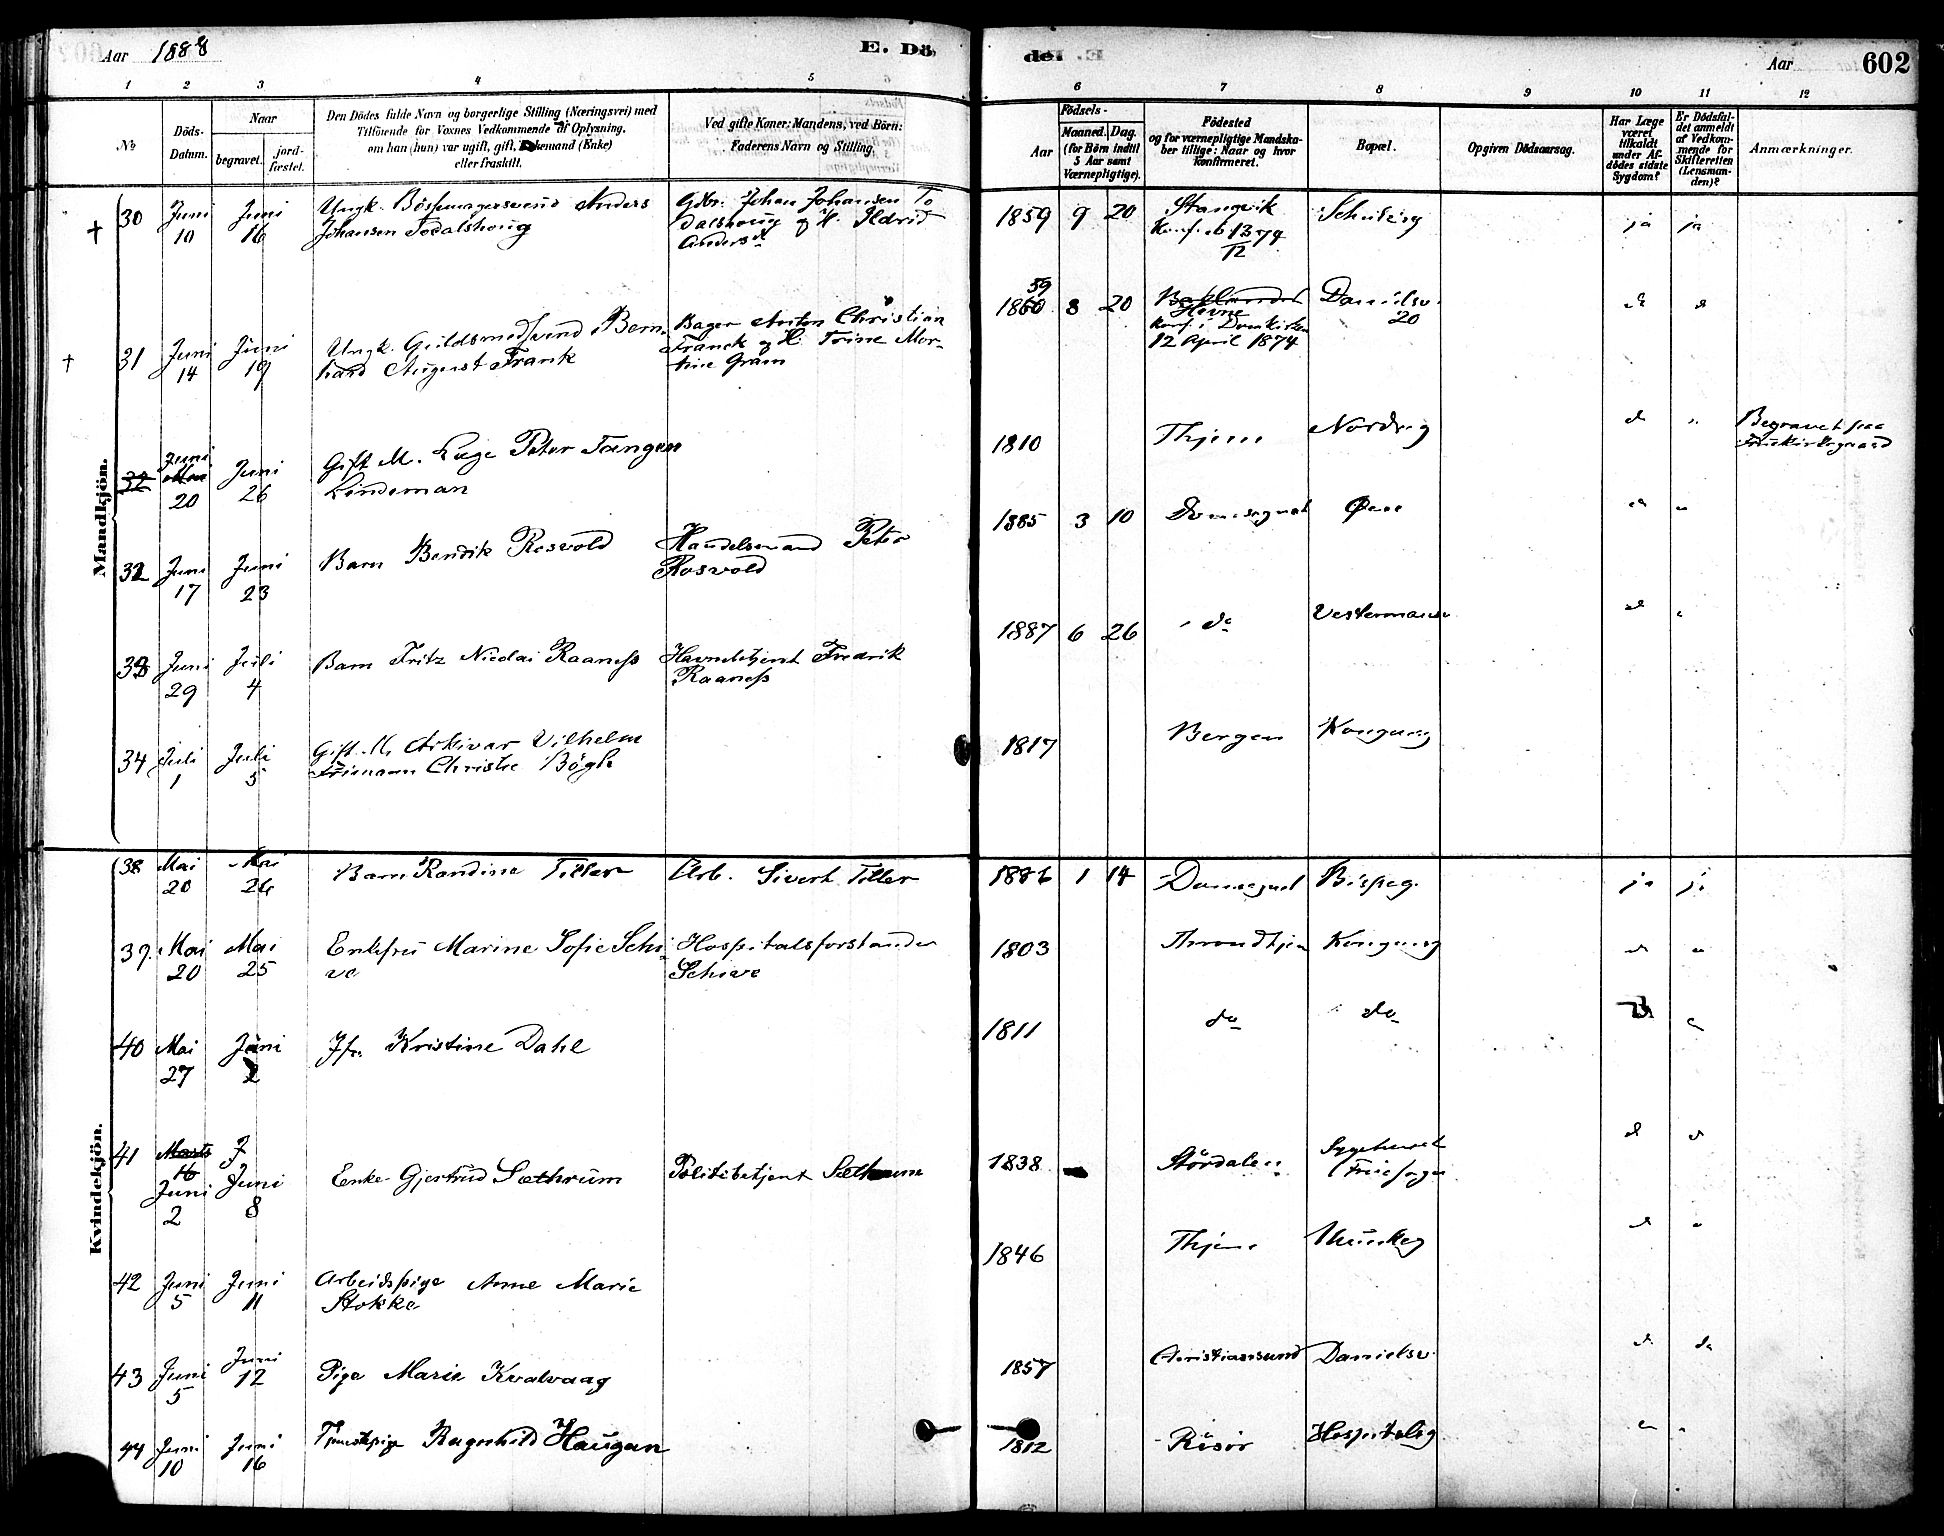 Aar 1888
E. Dö-
del
Aar
602
1 2 3 4 5 6 7 8 9 10 11 12
No
Döds-
Datum.
Naar
begravet. jord-
fæstet.
Den Dödes fulde Navn og borgerlige Stilling (Næringsvei) med
Tilföiende for Voxnes Vedkommende af Oplysning,
om han (hun) var ugift, gift, Enkemand (Enke)
eller fraskilt.
Ved gifte Koner: Mandens, ved Börn:
Faderens Navn og Stilling.
Födsels-
Aar Maaned. Dag.
(for Börn indtil
5 Aar samt
Værnepligtige).
Födested
og for værnepligtige Mandska-
ber tillige: Naar og hvor
konfirmeret.
Bopæl.
Opgiven Dödsaarsag.
Har Læge
været
tilkaldt
under Af-
dödes sidste
Sygdom?
Er Dödsfal-
det anmeldt
af Vedkom-
mende for
Skifteretten
(Lensman-
den)?
Anmærkninger.
Mandkjön.
30 Juni Juni Ungk. Bössmagersvend Anders Gbr. Johan Johansen To 1859 9 20 Stangvik ja ja
10 16 Johansen Todalshoug dalshoug og H. Ildrid
Anders
59
1860 8 20 Baklandet Danielsv.
Hevne 20
Konf. i Domkirken
12 April 1874
31 Juni Juni Ungk. Guldsmedsvend Bern- Bager Anton Christian
14 19 hard August Frank Franck og H. Trine Mor-
tine Gram
32 Juni Juni Gift M. Læge Peter Tangen 1810 Thjem Nordreg Begravet paa
Mai
20 26 Lindeman
32 Juni Juni Barn Bendik Rosvold Handelsmand Peter 1885 3 10 Domsognet Øren
17 23 Rosvold
33 Juni Juli Barn Fritz Nicolai Raaness Havnebetjent Fredrik 1887 6 26 do
29 4 Raaness
34 Juli Juli Gift M. Arkivar Vilhelm 1817 Bergen Kongensg
1 5 Frimann Christie Bögh
Kvindekjön.
38 Mai Mai Barn Randine Tiller Arb. Sivert Tiller 1886 1 14 Domsognet Bispeg. ja ja
20 26
39. Mai Mai Enkefru Marine Sofie Schi- Hospitalsforstander 1803 Throndhjem Kongensg
20 25 ve Schive
40 Mai Juni Jfr. Kristine Dahl 1811 do do
27 2
41 Marts J
16
Juni Juni Enke Gjertrud Sæthrum Politibetjent Sæthrum 1838 Stördalen Sygehuset
2 8
42 Juni Juni Arbeidspige Anne Marie 1846 Thjem Munkeg
5 11 Stokke
43 Juni Juni Pige Marie Kvalvaag 1857 Christiansund Danielsv. do
5 12
44 Juni Juni Tjenestepige Ragnhild Haugan 1812 Risör Hospitalsg
10 16